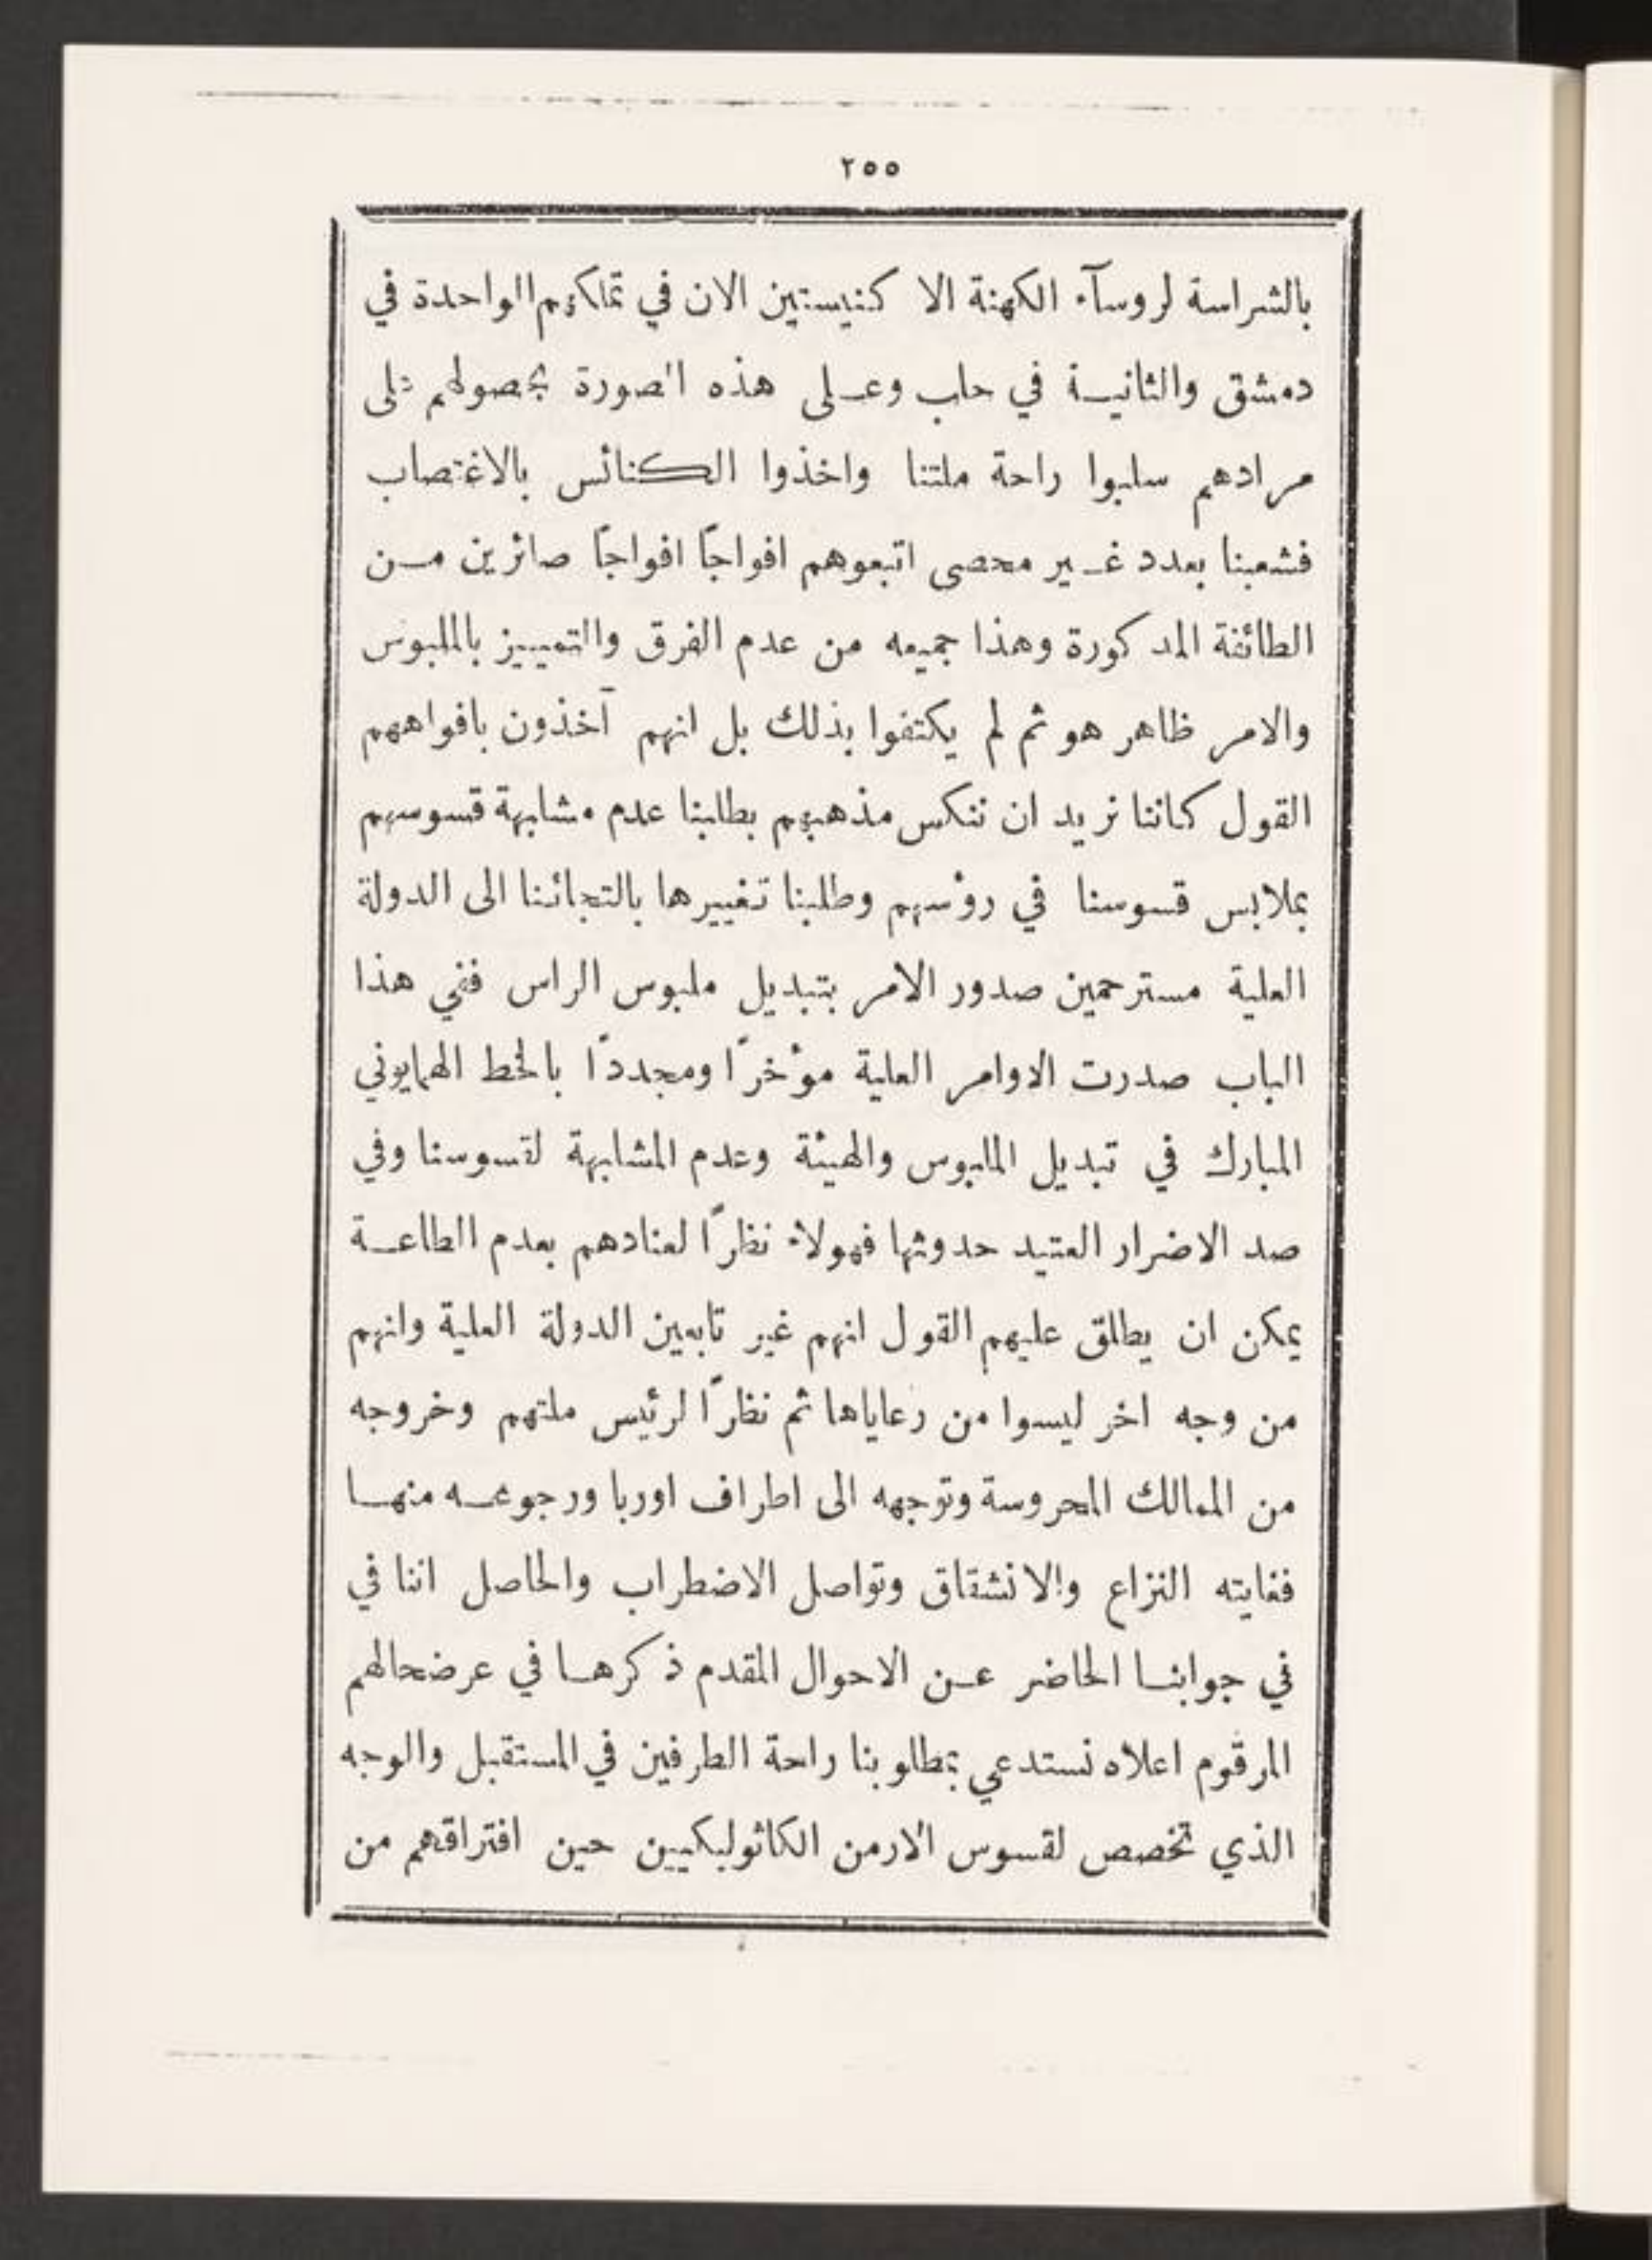 ٢٥٥
بالشراسة لروسآء الكهنة الا كنيستين الان في تملكهم الواحدة في
دمشق والثانيـة في حلب وعـلى هذه الصورة بحصولهم على
مرادهم سلبوا راحة ملتنا واخذوا الكنائس بالاغتصاب
فشعبنا بعدد غـير محصى اتبعوهم افواجًا افواجًا صائرين مـن
الطائفة المذكورة وهذا جميعه من عدم الفرق والتمييز بالملبوس
والامر ظاهر هو ثم لم يكتفوا بذلك بل انهم آخذون بافواههم
القول كاننا نريد ان ننكس مذهبهم بطلبنا عدم مشابهة قسوسهم
بملابس قسوسنا في رؤسهم وطلبنا تغييرها بالتجائنا الى الدولة
العلية مسترحمين صدور الامر بتبديل ملبوس الراس ففي هذا
الباب صدرت الاوامر العلية مؤخرًا ومجددًا بالخط الهمايوني
المبارك في تبديل الملبوس والهيئة وعدم المشابهة لقسوسنا وفي
صد الاضرار العتيد حدوثها فهولاء نظرًا لعنادهم بعدم الطاعـة
يمكن ان يطلق عليهم القول انهم غير تابعين الدولة العلية وانهم
من وجه اخر ليسوا من رعاياها ثم نظرًا لرئيس ملتهم وخروجه
من الممالك المحروسة وتوجهه الى اطراف اوربا ورجوعـه منهـا
فغايته النزاع والانشقاق وتواصل الاضطراب والحاصل اننا في
في جوابنـا الحاضر عـن الاحوال المقدم ذكرهـا في عرضحالهم
المرقوم اعلاه نستدعي بمطلوبنا راحة الطرفين في المستقبل والوجه
الذي تخصص لقسوس الارمن الكاثوليكيين حين افتراقهم من